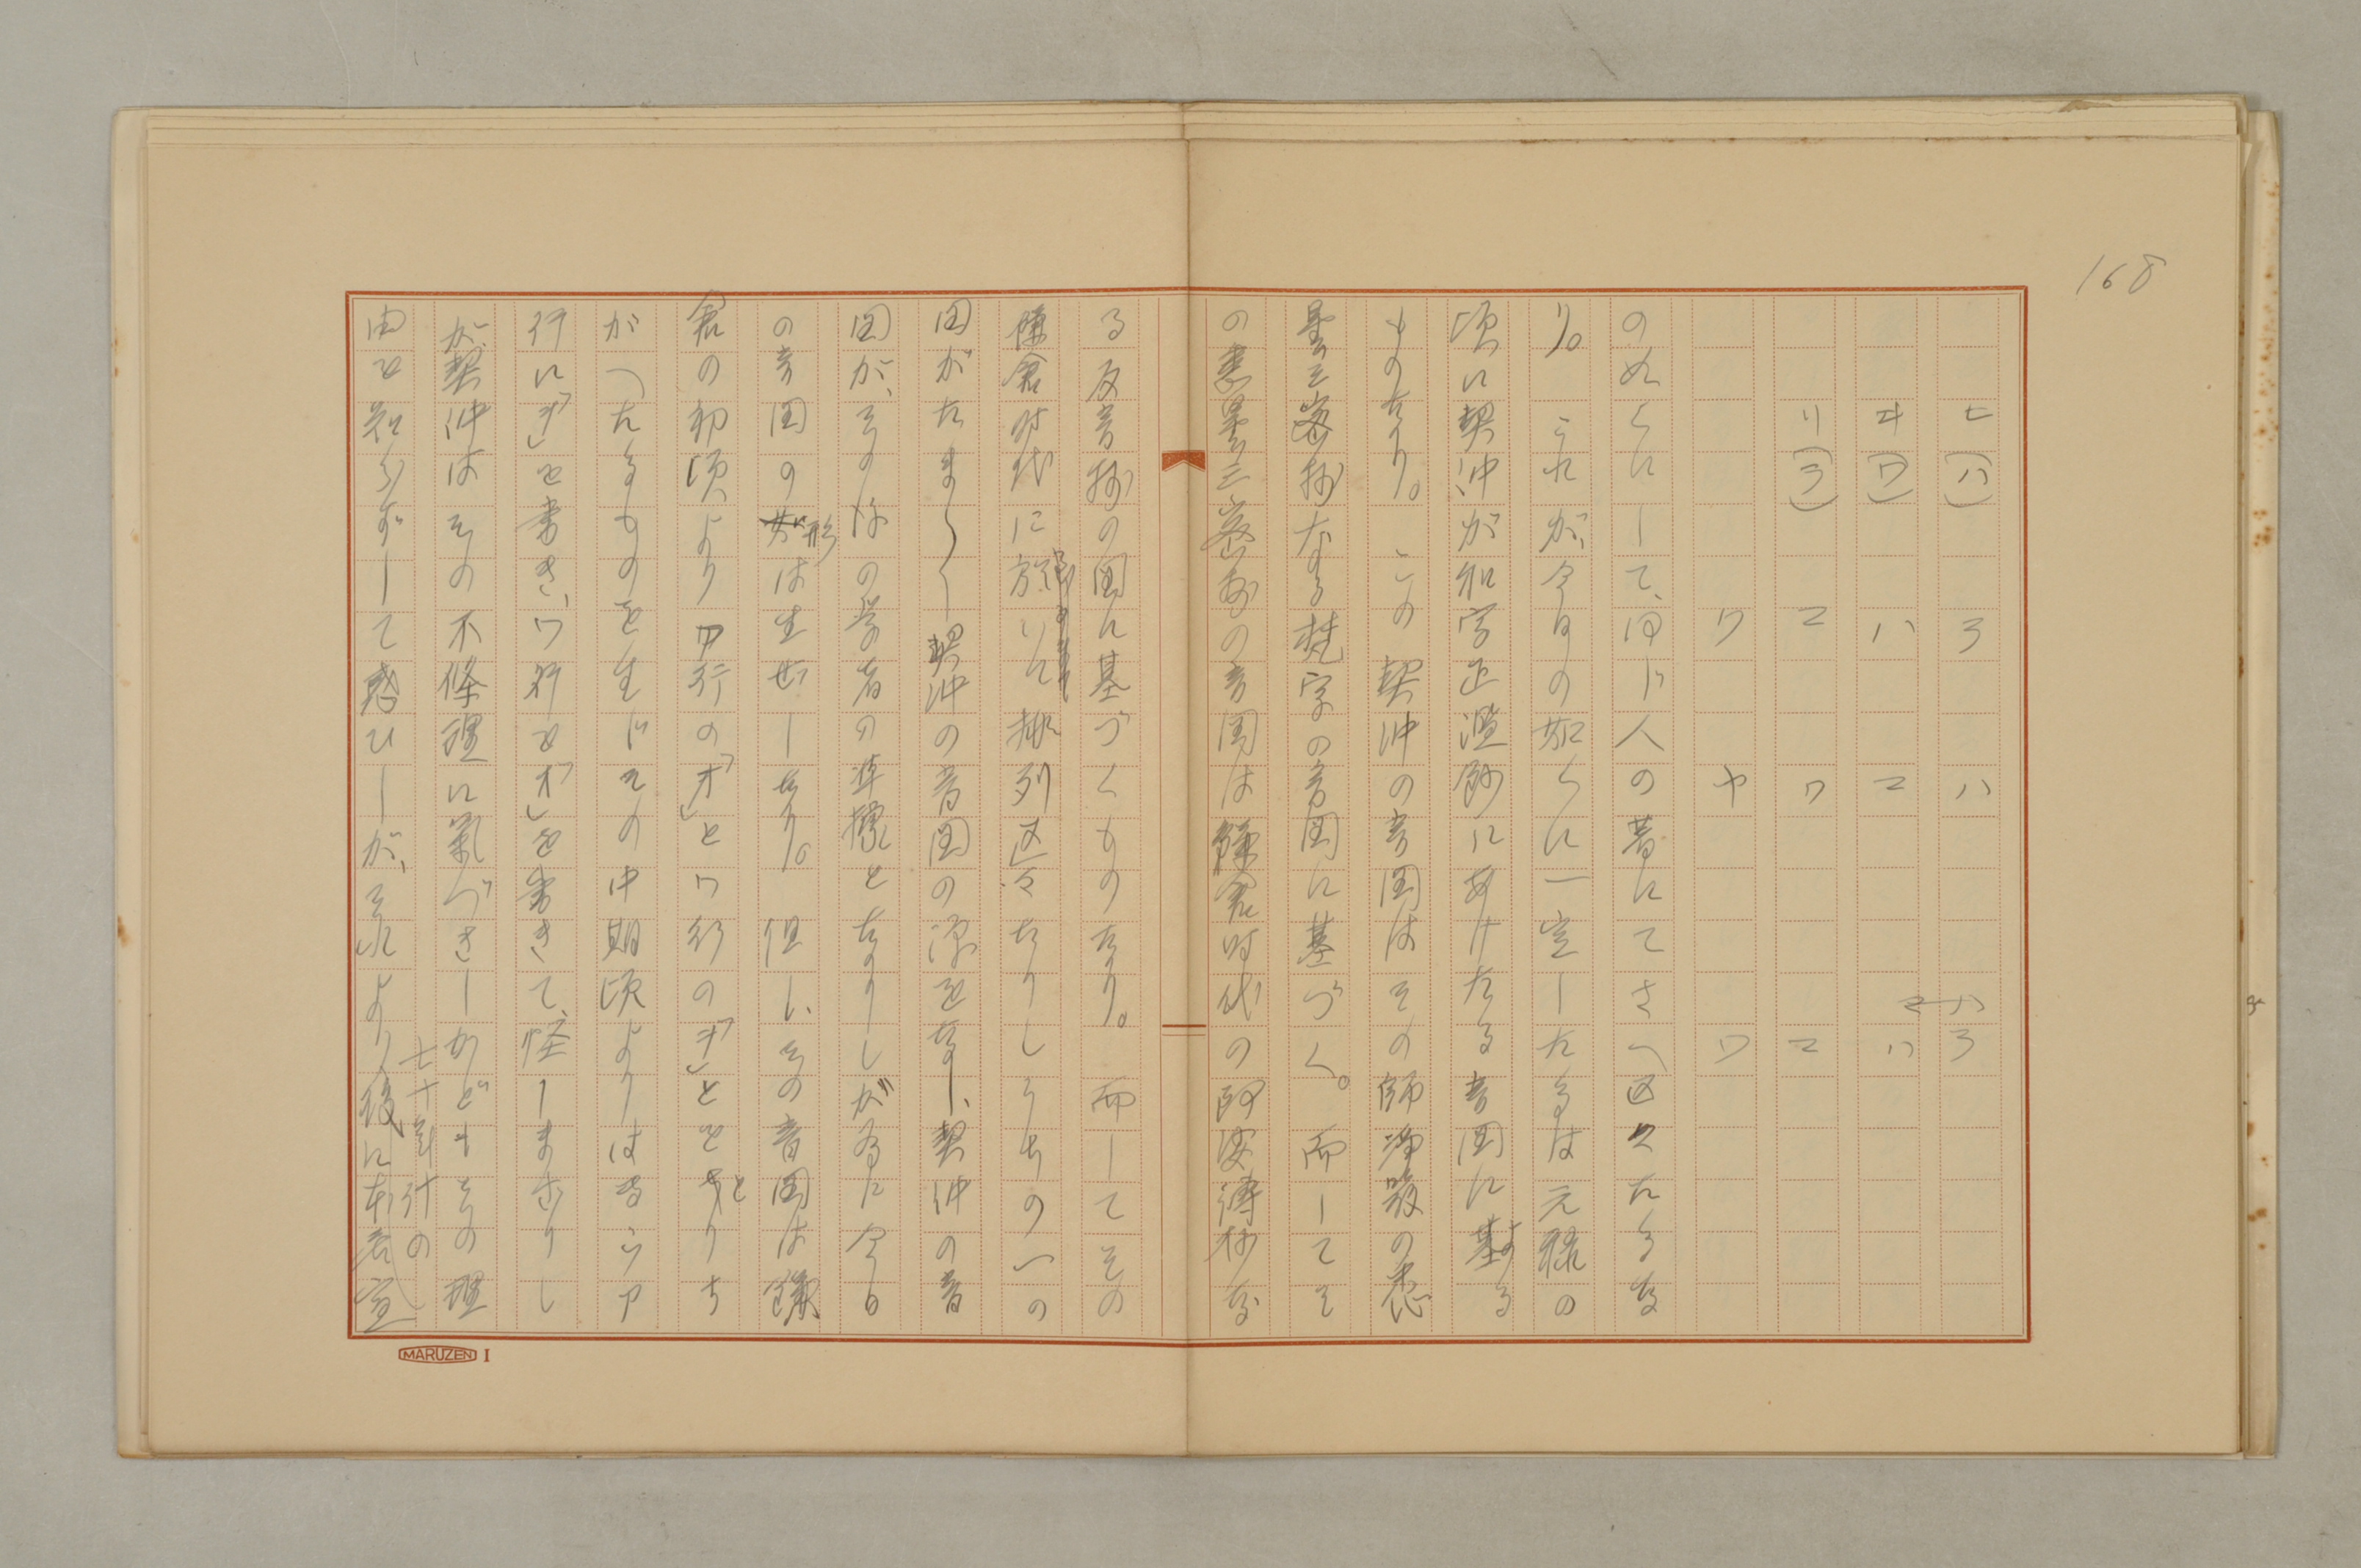 168
ヒ(ハ) ラ ハ ハラ
ヰ(ワ) ハ マ マハ
リ(ラ) マ ワ マ
ワ ヤ ワ
の如くにして、同じ人の著にてさへ区々たるな
り。これが、今日の如くに一定したるは元禄の
頃に契沖が和字正濫鈔にあげたる音図に基する
ものなり。この契沖の音図はその師浄厳の悉
曇三密鈔なる梵字の音図に基づく。而してそ
の悉曇三密鈔の音図は鎌倉時代の
る反音抄の図に基づくものなり。而してその
鎌倉時代に於りに排列区々たりしうちの一の
図がたま〳〵契沖の音図の源をなし、契沖の音
図が、その後の学者の準拠となりしが為に今日
の音図の形は生せしなり。但し、その音図は鎌
倉の初頃よりア行の「オ」とワ行の「ヲ」とをとりち
がへたるものを生じその中期頃よりはなべてア
行に「ヲ」を書き、ワ行に「オ」を書きて、怪しまざりし
が、契沖はその不條理に氣づきしかどもその理
由を知らずして惑ひしが、それより七十年計の後に本居宣
MARUZEN I